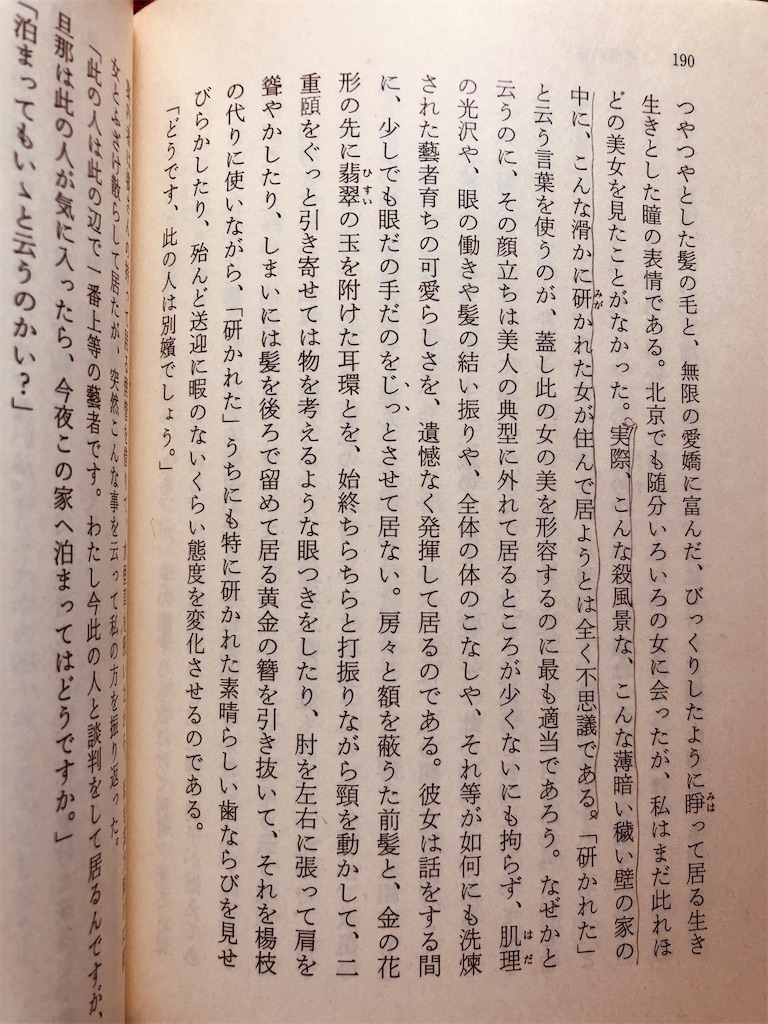 190
つやつやとした髪の毛と、無限の愛嬌に富んだ、びっくりしたように睜って居る生き
みは
生きとした瞳の表情である。北京でも随分いろいろの女に会ったが、私はまだ此れほ
どの美女を見たことがなかった。実際、こんな殺風景な、こんな薄暗い穢い壁の家の
中に、こんな滑かに研かれた女が住んで居ようとは全く不思議である。「研かれた」
みが
と云う言葉を使うのが、蓋し此の女の美を形容するのに最も適当であろう。なぜかと
云うのに、その顔立ちは美人の典型に外れて居るところが少くないにも拘らず、肌理
はだ
の光沢や、眼の働きや髪の結い振りや、全体の体のこなしや、それ等が如何にも洗煉
された藝者育ちの可愛らしさを、遺憾なく発揮して居るのである。彼女は話をする間
に、少しでも眼だの手だのをじっとさせて居ない。房々と額を蔽うた前髪と、金の花
形の先に翡翠の玉を附けた耳環とを、始終ちらちらと打振りながら頸を動かして、二
ひすい
重頤をぐっと引き寄せては物を考えるような眼つきをしたり、肘を左右に張って肩を
聳やかしたり、しまいには髪を後ろで留めて居る黄金の簪を引き抜いて、それを楊枝
の代りに使いながら、「研かれた」うちにも特に研かれた素晴らしい歯ならびを見せ
びらかしたり、殆んど送迎に暇のないくらい態度を変化させるのである。
「どうです、此の人は別嬪でしょう。」
女とふざけ散らして居たが、突然こんな事を云って私の方を振り返った。
「此の人は此の辺で一番上等の藝者です。わたし今此の人と談判をして居るんですが、
旦那は此の人が気に入ったら、今夜この家へ泊まってはどうですか。」
「泊まってもいゝと云うのかい？」